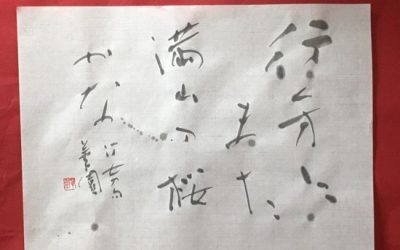 行方に
また
満山の桜
かな